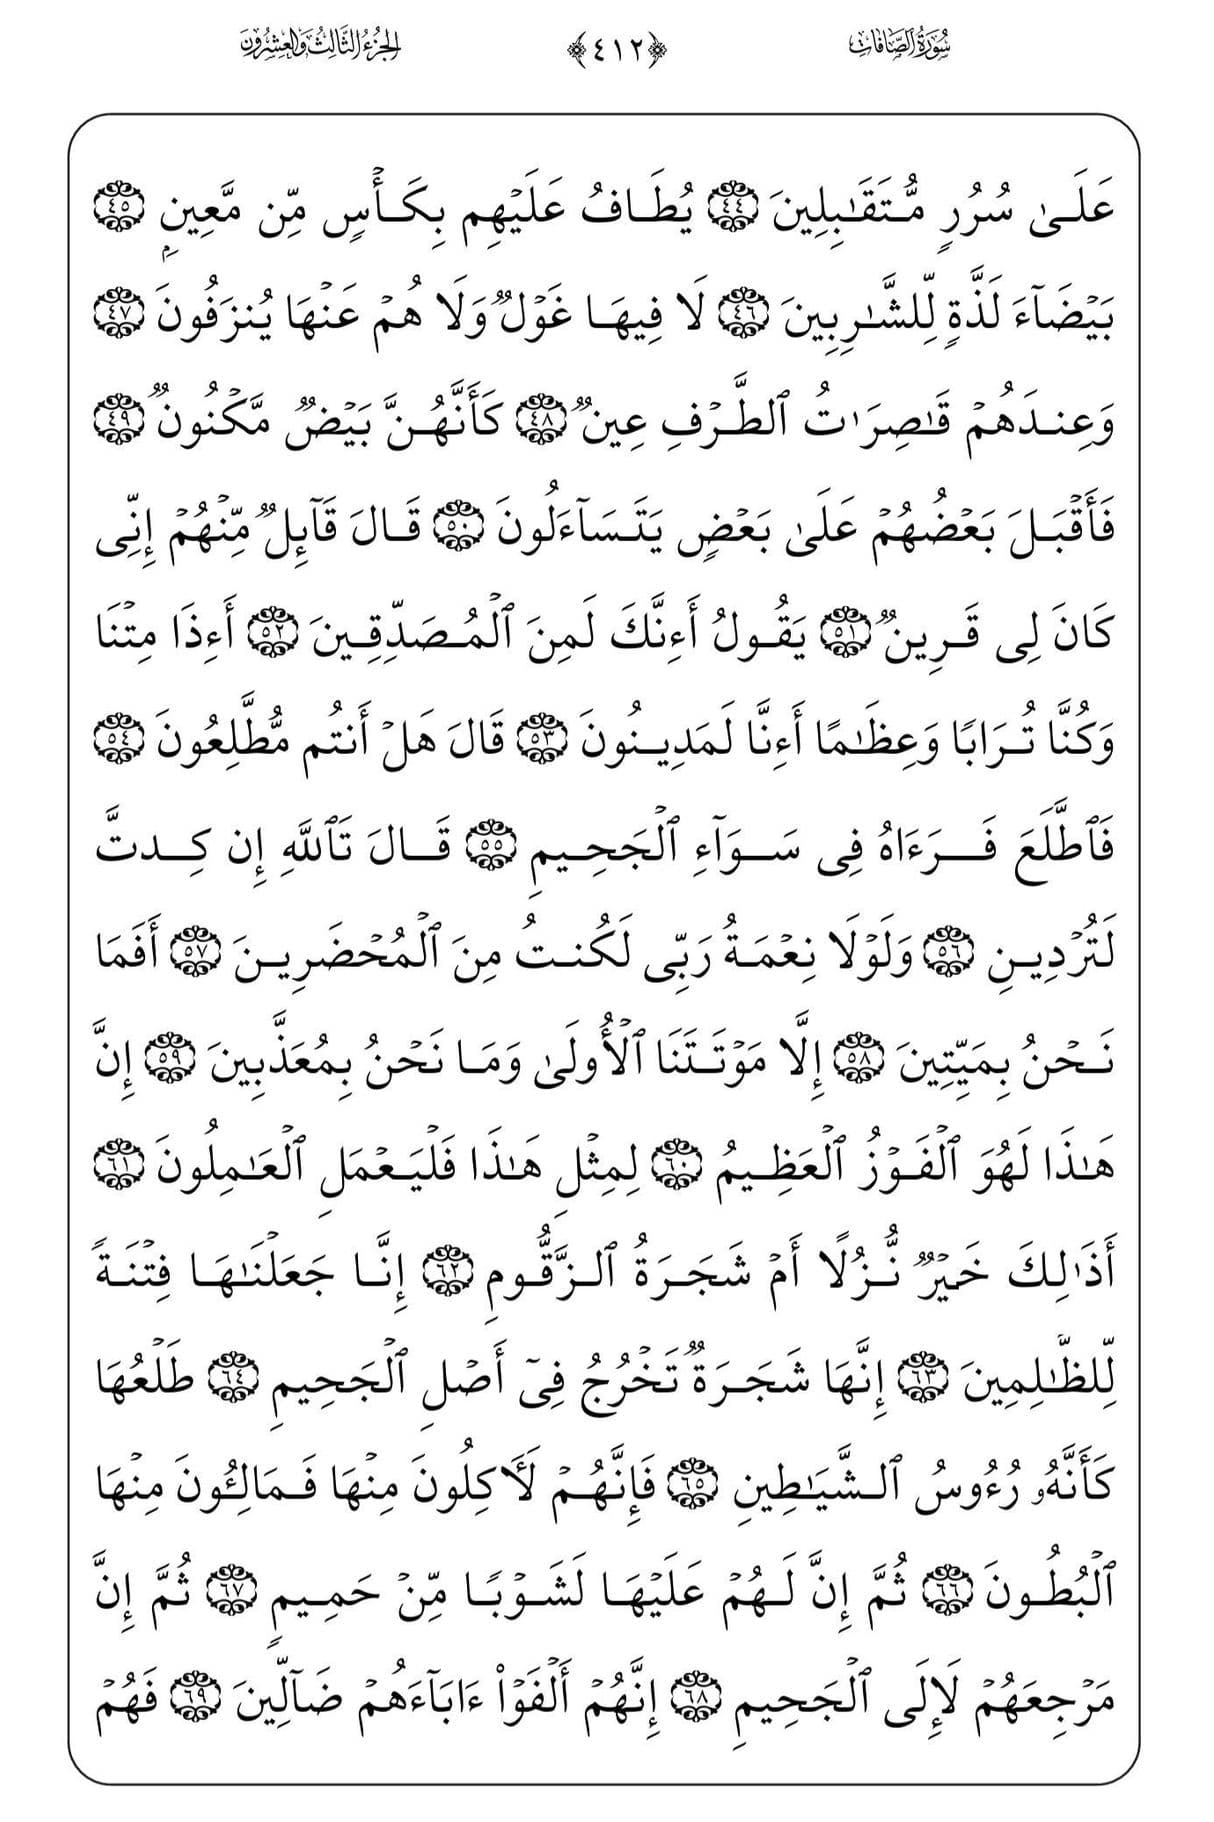 سُورَةُ الصَّافَّاتِ ﴿٤١٢﴾ الجُزْءُ الثَّالِثُ وَالعِشْرُونَ
عَلَىٰ سُرُرٍ مُّتَقَٰبِلِينَ ٤٤ يُطَافُ عَلَيْهِم بِكَأْسٍ مِّن مَّعِينٍۭ ٤٥
بَيْضَآءَ لَذَّةٍ لِّلشَّٰرِبِينَ ٤٦ لَا فِيهَا غَوْلٌ وَلَا هُمْ عَنْهَا يُنزَفُونَ ٤٧
وَعِندَهُمْ قَٰصِرَٰتُ ٱلطَّرْفِ عِينٌ ٤٨ كَأَنَّهُنَّ بَيْضٌ مَّكْنُونٌ ٤٩
فَأَقْبَلَ بَعْضُهُمْ عَلَىٰ بَعْضٍ يَتَسَآءَلُونَ ٥٠ قَالَ قَآئِلٌ مِّنْهُمْ إِنِّى
كَانَ لِى قَرِينٌ ٥١ يَقُولُ أَءِنَّكَ لَمِنَ ٱلْمُصَدِّقِينَ ٥٢ أَءِذَا مِتْنَا
وَكُنَّا تُرَابًا وَعِظَٰمًا أَءِنَّا لَمَدِينُونَ ٥٣ قَالَ هَلْ أَنتُم مُّطَّلِعُونَ ٥٤
فَٱطَّلَعَ فَرَءَاهُ فِى سَوَآءِ ٱلْجَحِيمِ ٥٥ قَالَ تَٱللَّهِ إِن كِدتَّ
لَتُرْدِينِ ٥٦ وَلَوْلَا نِعْمَةُ رَبِّى لَكُنتُ مِنَ ٱلْمُحْضَرِينَ ٥٧ أَفَمَا
نَحْنُ بِمَيِّتِينَ ٥٨ إِلَّا مَوْتَتَنَا ٱلْأُولَىٰ وَمَا نَحْنُ بِمُعَذَّبِينَ ٥٩ إِنَّ
هَٰذَا لَهُوَ ٱلْفَوْزُ ٱلْعَظِيمُ ٦٠ لِمِثْلِ هَٰذَا فَلْيَعْمَلِ ٱلْعَٰمِلُونَ ٦١
أَذَٰلِكَ خَيْرٌ نُّزُلًا أَمْ شَجَرَةُ ٱلزَّقُّومِ ٦٢ إِنَّا جَعَلْنَٰهَا فِتْنَةً
لِّلظَّٰلِمِينَ ٦٣ إِنَّهَا شَجَرَةٌ تَخْرُجُ فِىٓ أَصْلِ ٱلْجَحِيمِ ٦٤ طَلْعُهَا
كَأَنَّهُۥ رُءُوسُ ٱلشَّيَٰطِينِ ٦٥ فَإِنَّهُمْ لَأَكِلُونَ مِنْهَا فَمَالِـُٔونَ مِنْهَا
ٱلْبُطُونَ ٦٦ ثُمَّ إِنَّ لَهُمْ عَلَيْهَا لَشَوْبًا مِّنْ حَمِيمٍ ٦٧ ثُمَّ إِنَّ
مَرْجِعَهُمْ لَإِلَى ٱلْجَحِيمِ ٦٨ إِنَّهُمْ أَلْفَوْا۟ ءَابَآءَهُمْ ضَآلِّينَ ٦٩ فَهُمْ